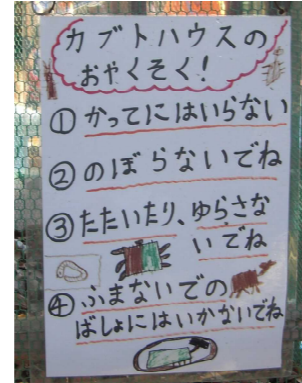 カブトハウスの
おやくそく!
① かってにはいらない
② のぼらないでね
③ たたいたり、ゆらさな
いでね
④ ふまないでの
ばしょにはいかないでね